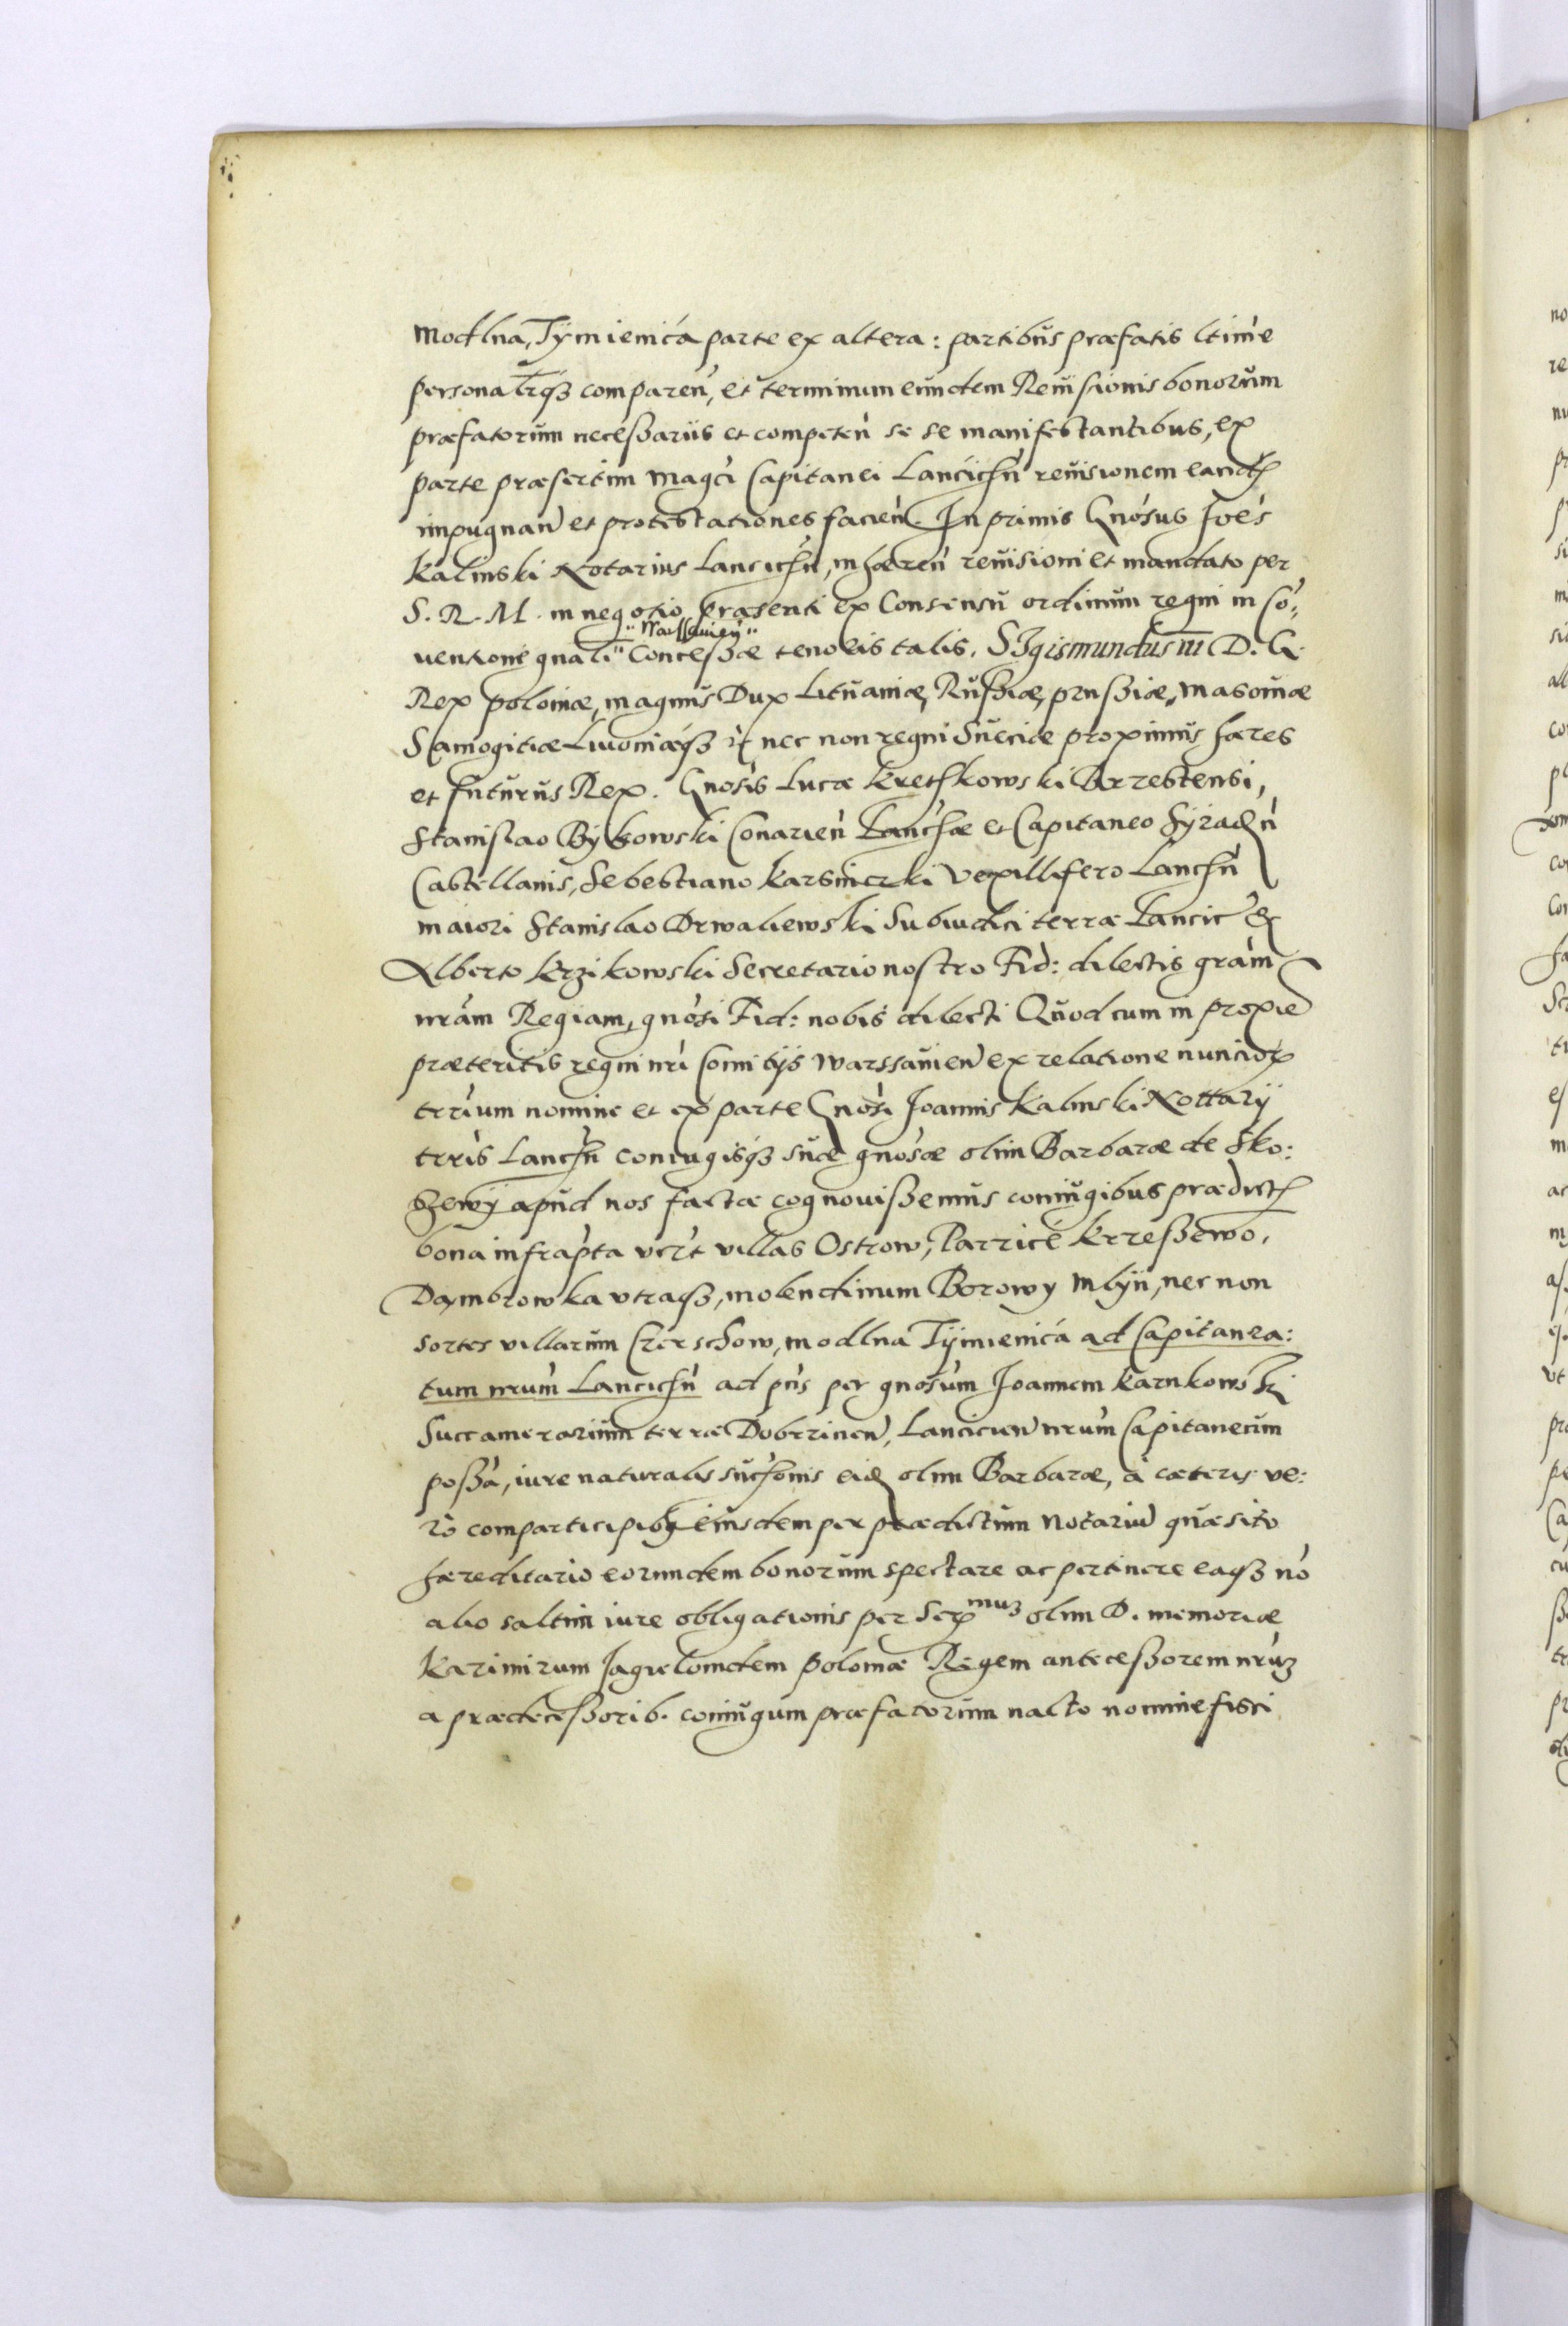 Modlna, Tÿmienića parte ex altera: partibus præfatis ltime
personalrqȝ comparen, et terminum eundem Reuisionis bonorum
præfatorum necessariis et competen se se manifestantibus, ex
parte præsertim Magci Capitanei Lancichn reuisionem eand
impugnan et protestationes facien. In primis Gnosus Joes
Kalinski Notarius Lancichn, inhæren reuisioni et mandato per
S. R. M. in negotio præsenti ex Consensu ordinum regni in Co,
"Warssauien"
uentione gnali" Concessæ tenoris talis. SIgismundus III D. G.
Rex poloniæ, magnus Dux Lituaniæ, Russiæ, prussiæ, Masouiæ
Samogitiæ Liuoniæqȝ nec non regni Sueciæ proximus hæres
et futurus Rex. Gnosis Lucæ Krethkowski Brzestensi,
Stanislao Bÿkowski Conarien Lanchæ et Capitaneo Sÿradn
Castellanis, Sebestiano Karsniczki Vexillifero Lanchn
maiori Stanislao Drwaliewski Subiudici terræ Lancic et
Alberto Krzikowski Secretario nostro Fid: dilectis gram
nram Regiam, gnosi Fid: nobis dilecti Quod cum in proxie
præteritis regni nri Comitÿs Warssauien ex relatione nuncior
trium nomine et ex parte Gnosi Joannis Kalinski Nottarÿ
tris Lanchn coniugisqȝ suæ gnosæ olim Barbaræ de Sko:
szewÿ apud nos factæ cognouissemus coniugibus prædict
bona infrapta vert villas Ostrow, Parzicé Krzessewo,
Dambrowka vtraqȝ, molendinum Borowy mlÿn, nec non
sortes villarum Czerschow, modlna Tÿmienića ad Capitanea:
tum nrum Lancichn ad pns per gnosum Joannem Karnkowski
Succamerarium terræ Dobrzinen, Lancicien nrum Capitaneum
possa, iure naturalis suchonis eid olim Barbaræ, à cæteris ve:
ro comparticipibȝ eiusdem per prædictum Notariu quæsito
hæreditario eorundem bonorum spectare ac pertinere eaqȝ no
alio saltim iure obligationis per Sermuȝ olim D. memoriæ
Kazimirum Jagielonidem poloniæ Regem antecessorem nruȝ
a prædecessorib. coniugum præfatorum nacto nomine fisci